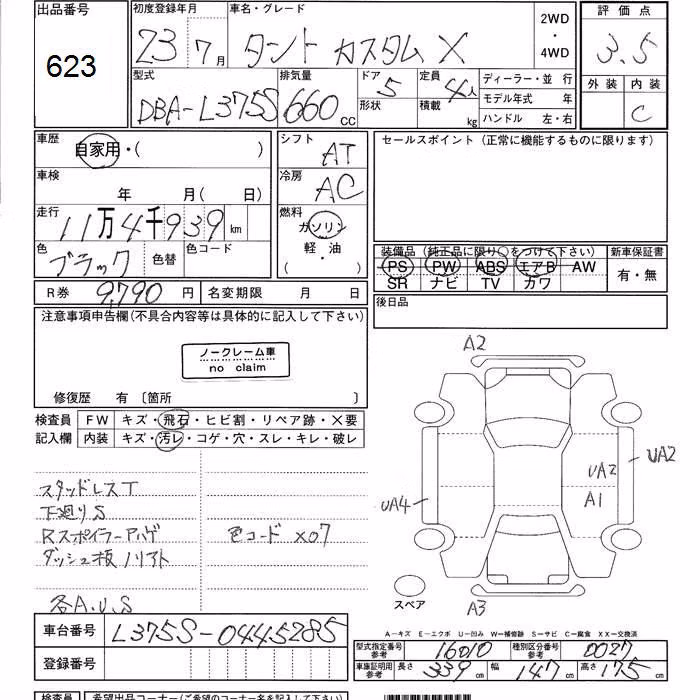 出品番号
623
初度登録年月
23 7月
車名・グレード
タント カスタム X
2WD
・
4WD
評価点
3.5
外装 内装
C
型式
DBA-L375S
排気量
660 CC
ドア 5
形状
定員 4人
積載 kg
ディーラー・並 行
モデル年式 年
ハンドル 左・右
車歴
自家用・( )
車検
年 月( 日)
走行
11万4千939km
色
ブラック
色替
色コード
シフト
AT
冷房
AC
燃料
ガソリン
軽・油
( )
セールスポイント (正常に機能するものに限ります)
装備品 (純正品に限り○をつけて下さい)
PS PW ABS エアB AW
SR ナビ TV カワ
新車保証書
有・無
後日品
R券 9,790 円
名変期限 月 日
注意事項申告欄(不具合内容等は具体的に記入して下さい)
ノークレーム車
no claim
修復歴 有 〔箇所 〕
検査員
記入欄
FW キズ・飛石・ヒビ割・リペア跡・X要
内装 キズ・汚レ・コゲ・穴・スレ・キレ・破レ
スタッドレスT
下廻りS
Rスポイラーアハゲ
ダッシュ板ノリアト
色コード X07
各A.U.S
A2
UA2
UA2
A1
UA4
A3
スペア
A−キズ E−エクボ U−凹み W−補修跡 S−サビ C−腐食 XX−交換済
車台番号 L375S-0445285
登録番号
型式指定番号
参考
16010
種別区分番号
参考
0027
車庫証明用
参考
長さ 339cm 幅 147cm 高さ 175cm
検査員 希望出品コーナー(ご希望のコーナー名を記入して下さい)